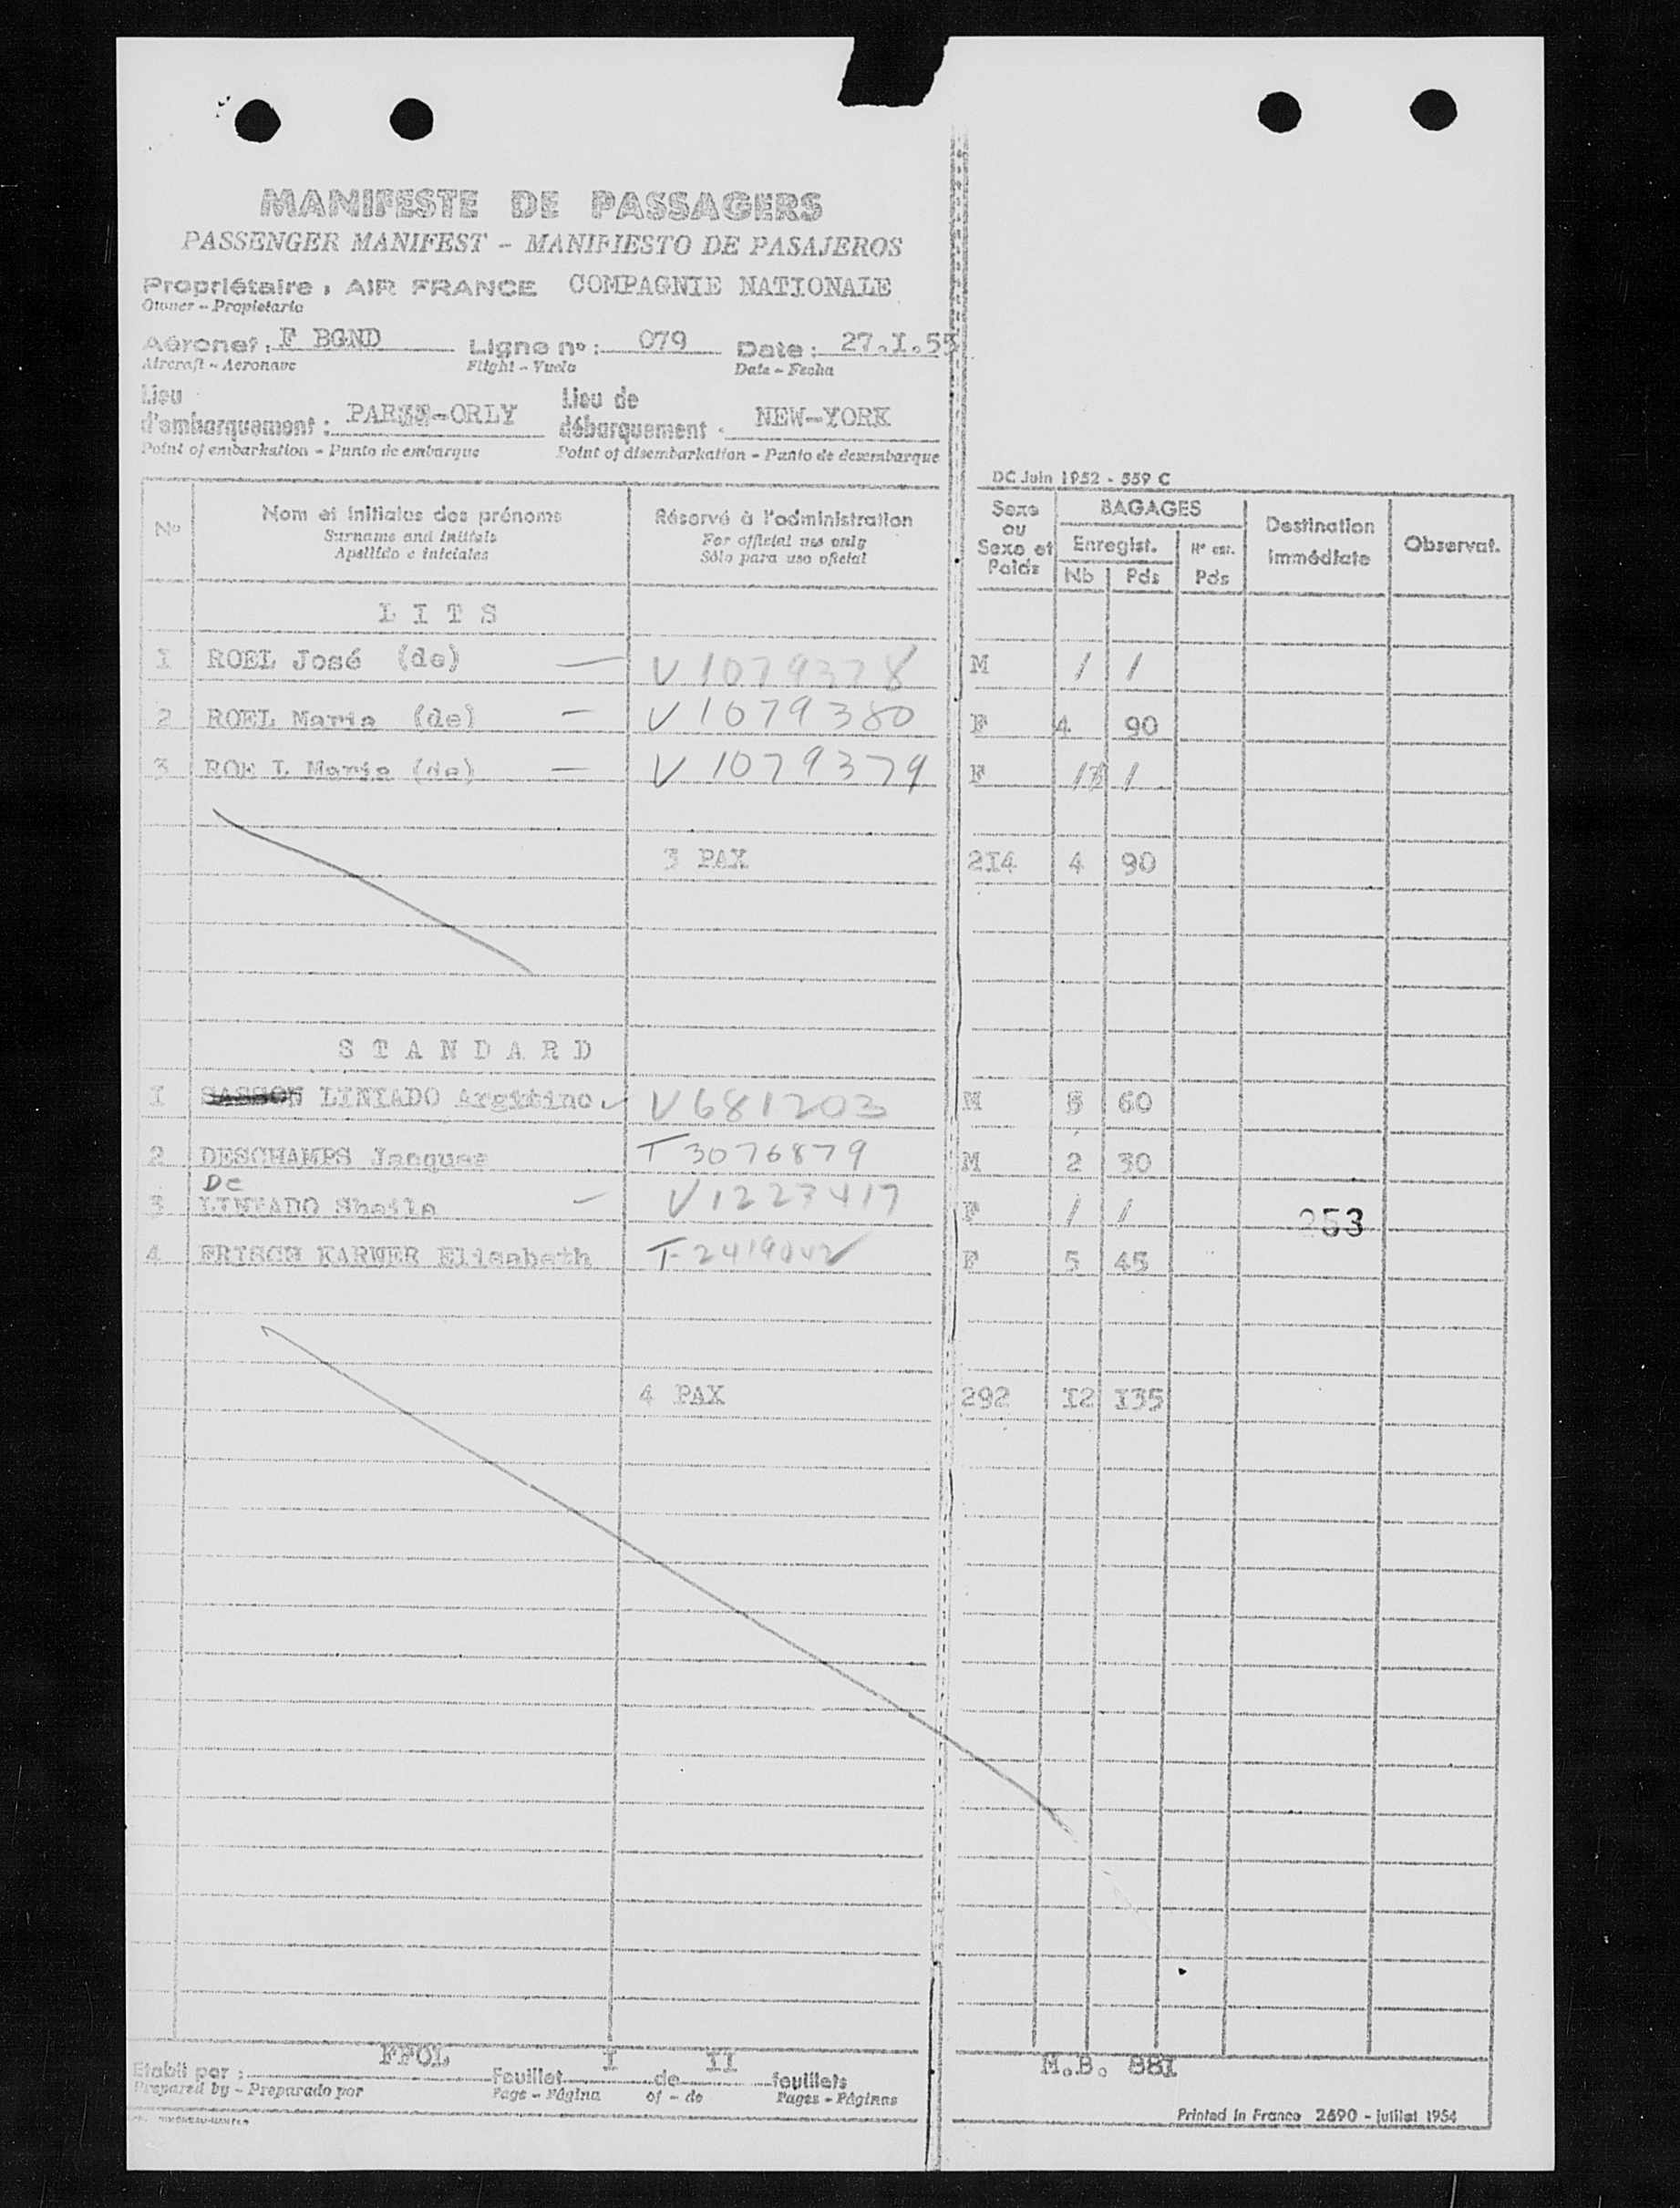 MANIFESTE DE PASSAGERS
PASSENGER MANIFEST - MANIFIESTO DE PASAJEROS
Propriétaire : AIR FRANCE COMPAGNIE NATIONALE
Owner - Propietario
Aéronef : F BGND Ligne nº : 079 Date : 27.I.55
Aircraft - Aeronave Flight - Vuelo Date - Fecha
Lieu d'embarquement : PARIS-ORLY Lieu de débarquement : NEW-YORK
Point of embarkation - Punto de embarque Point of disembarkation - Punto de desembarque
DC Juin 1952 - 559 C
Nº Nom et initiales des prénoms Réservé à l'administration Sexe ou Sexe et Poids BAGAGES Destination immédiate Observat.
Surname and initials For official use only Enregist. Nº enr.
Apellido e iniciales Sólo para uso oficial Nb Pds Pds
L I T S
I ROEL José (de) — V 1079378 M / /
2 ROEL Maria (de) — V 1079380 F 4 90
3 ROE L Maria (de) — V 1079379 F / /
3 PAX 2I4 4 90
S T A N D A R D
I LINIADO V681203 M 5 60
2 DESCHAMPS Jacques T 3076879 M 2 30
De
3 LINIADO Sheila — V1223417 F / / 253
4 FRISCH KARWER Elisabeth T-2419042 F 5 45
4 PAX 292 I2 I35
Etabli par : FFOL Feuillet I de II feuillets M.B. 88I
Prepared by - Preparado por Page - Página of - de Pages - Páginas
Printed in France 2690 - juillet 1954